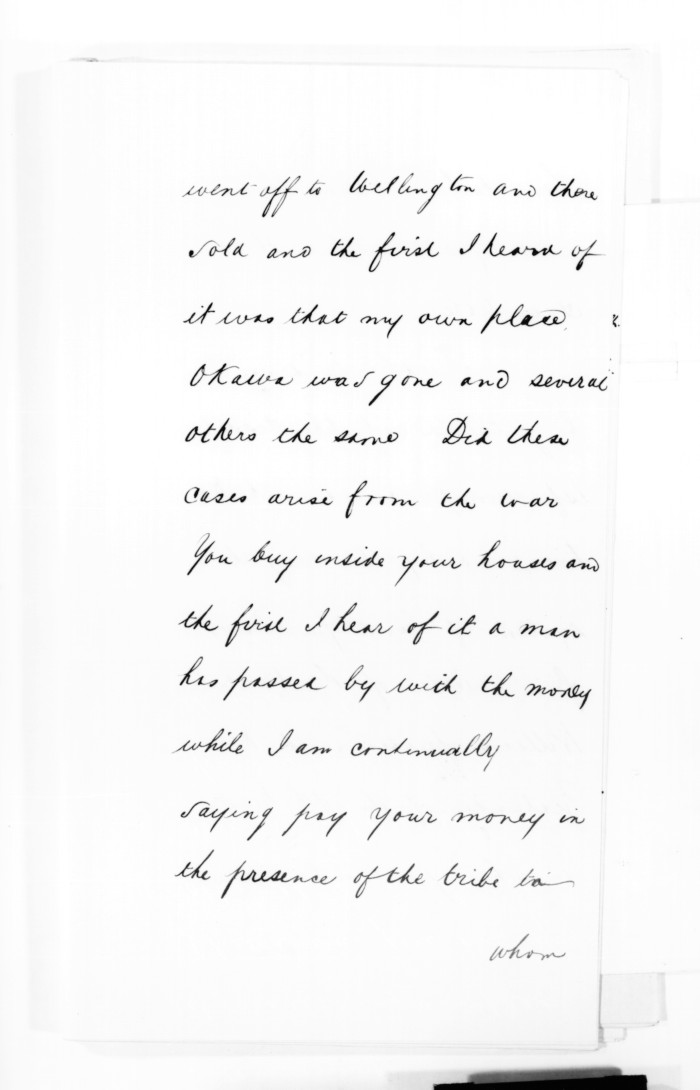 went off to Wellington and there
sold and the first I heard of
it was that my own place
Okawa was gone and several
others the same Did these
cases arise from the war
You buy inside your houses and
the first I hear of it a man
has passed by with the money
while I am continually
saying pay your money in
the presence of the tribe to
whom